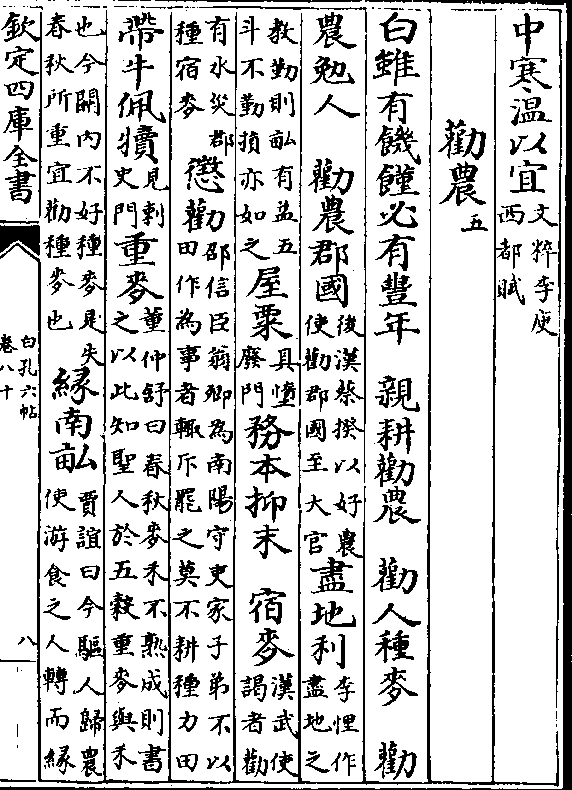 中寒溫以宜文粹李庾西都賦
勸農五
白雖有饑饉必有豐年　親耕勸農　勸人種麥　勸
農勉人　勸農郡國後漢蔡揆以好農使勸郡國至大官盡地利李悝作盡地之
教勤則畝有益五斗不勤損亦如之屋粟具墮廢門務本抑末　宿麥漢武使謁者勸
有水災郡種宿麥懲勸邵信臣翁卿為南陽守吏家子弟不以田作為事者輒斥罷之莫不耕種力田
帶牛佩犢見刺史門重麥董仲舒曰春秋麥禾不熟成則書之以此知聖人於五穀重麥與禾
也今關內不好種麥是失春秋所重宜勸種麥也緣南畝賈誼曰今驅人歸農使游食之人轉而緣
欽定四庫全書
白孔六帖
卷八十
八